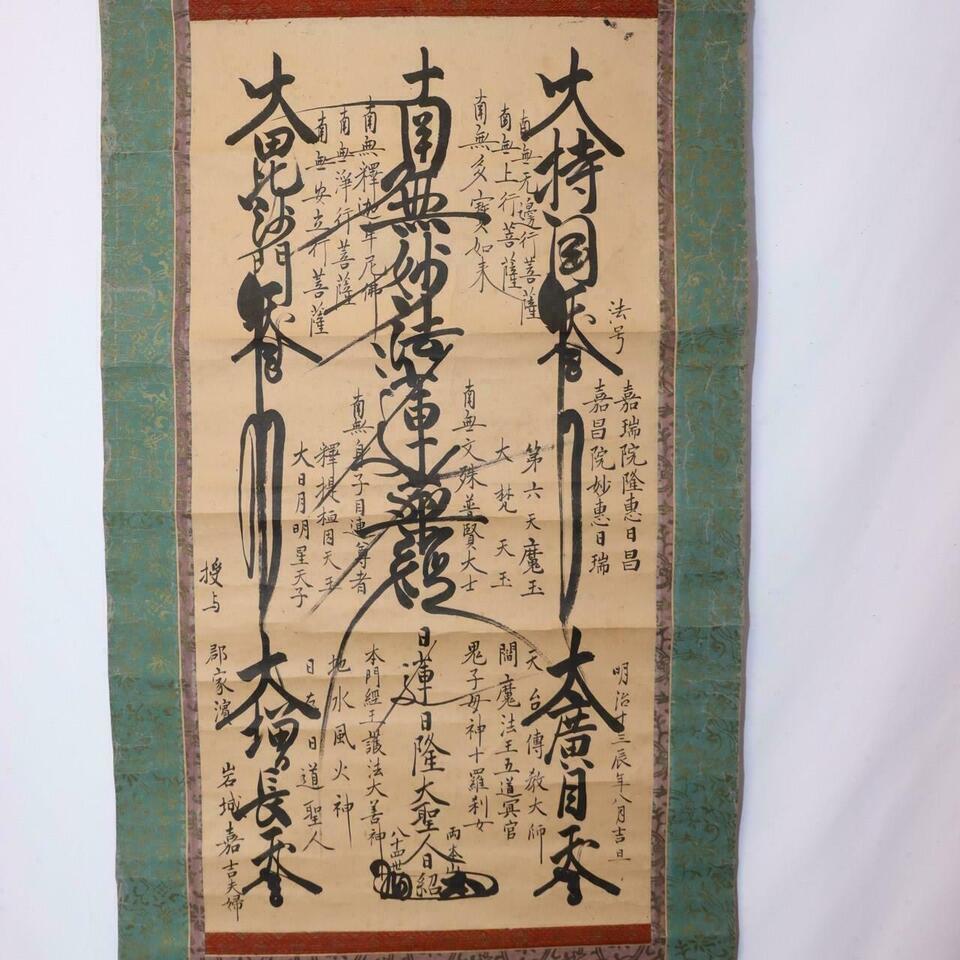 大持国天王
法号
嘉瑞院隆惠日昌
嘉昌院妙惠日瑞
明治十三辰年八月吉旦
大廣目天王
南無无邊行菩薩
南無上行菩薩
南無多寳如来
第六天魔王
大梵天王
南無文殊普賢大士
天台傳教大師
閻魔法王五道冥官
鬼子母神十羅刹女
南無妙法蓮華經
日蓮日隆大聖人
両本山
八十四世
日紹
南無釋迦牟尼佛
南無淨行菩薩
南無安立行菩薩
南無身子目連尊者
釋提桓因天王
大日月明星天子
本門經王護法大善神
地水風火神
日道聖人
大毘沙門天王
大増長天王
授与
郡家濱
岩城嘉吉夫婦